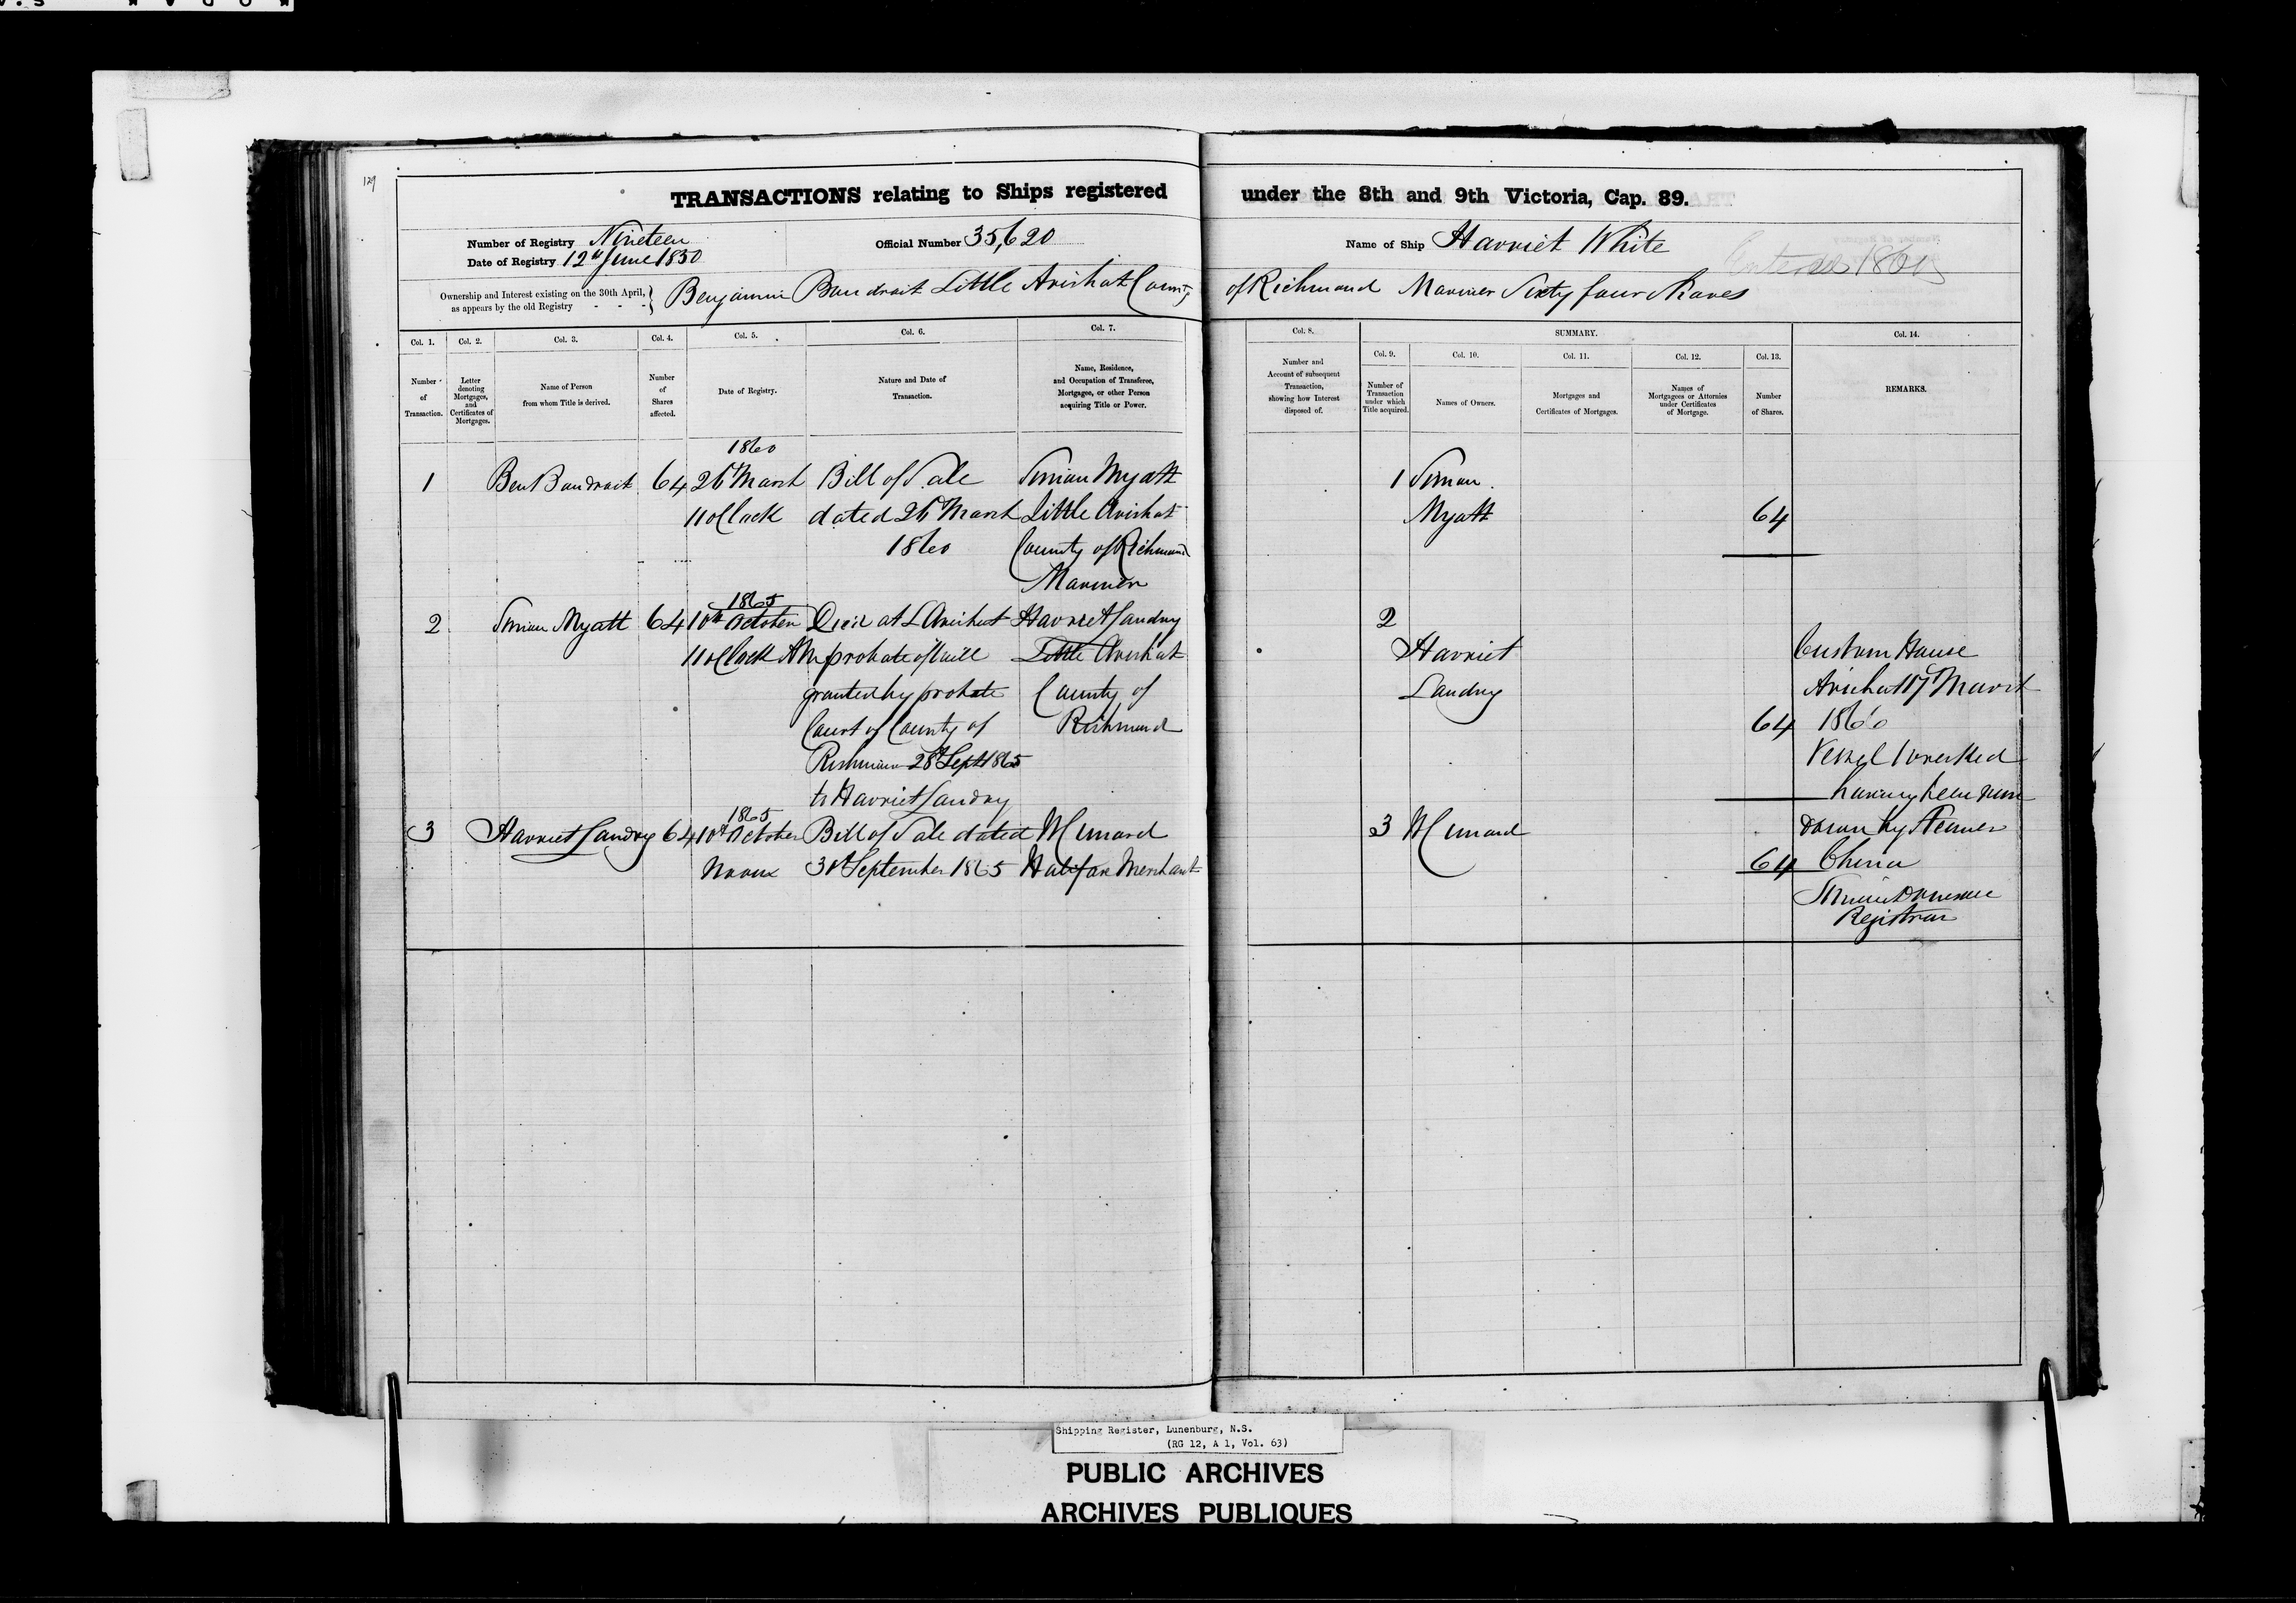 129
TRANSACTIONS relating to Ships registered under the 8th and 9th Victoria, Cap. 89.
Number of Registry Nineteen
Date of Registry 12th June 1850
Official Number 35,620
Name of Ship Harriet White
Entered 186
Ownership and Interest existing on the 30th April,
as appears by the old Registry - - -
Benjamin Boudroit Little Arichat County of Richmond Mariner Sixty four Shares
Col. 1.
Number
of
Transaction.
Col. 2.
Letter
denoting
Mortgages,
and
Certificates of
Mortgages.
Col. 3.
Name of Person
from whom Title is derived.
Col. 4.
Number
of
Shares
affected.
Col. 5.
Date of Registry.
Col. 6.
Nature and Date of
Transaction.
Col. 7.
Name, Residence,
and Occupation of Transferee,
Mortgagee, or other Person
acquiring Title or Power.
Col. 8.
Number and
Account of subsequent
Transaction,
showing how Interest
disposed of.
SUMMARY.
Col. 9.
Number of
Transaction
under which
Title acquired.
Col. 10.
Names of Owners.
Col. 11.
Mortgages and
Certificates of Mortgages.
Col. 12.
Names of
Mortgagees or Attornies
under Certificates
of Mortgage.
Col. 13.
Number
of Shares.
Col. 14.
REMARKS.
1860
1 Ben Boudroit 64 26th March Bill of Sale Simon Myatt 1 Simon
11 oClock dated 26th March Little Arichat Myatt 64
1860 County of Richmond
Mariner
1865
2 Simon Myatt 64 10th October Died at L Arichat Harriet Landry 2
11 oClock AM probate of will Little Arichat Harriet Custom House
granted by probate County of Landry Arichat 17 March
Court of County of Richmond 64 1866
Richmond 28th Sept 1865 Vessel Wrecked
to Harriet Landry having been run
1865
3 Harriet Landry 64 10th October Bill of Sale dated W Cunard 3 W Cunard down by Steamer
Noon 30th September 1865 Halifax Merchant 64 China
Registrar
Shipping Register, Lunenburg, N.S.
(RG 12, A 1, Vol. 63)
PUBLIC ARCHIVES
ARCHIVES PUBLIQUES